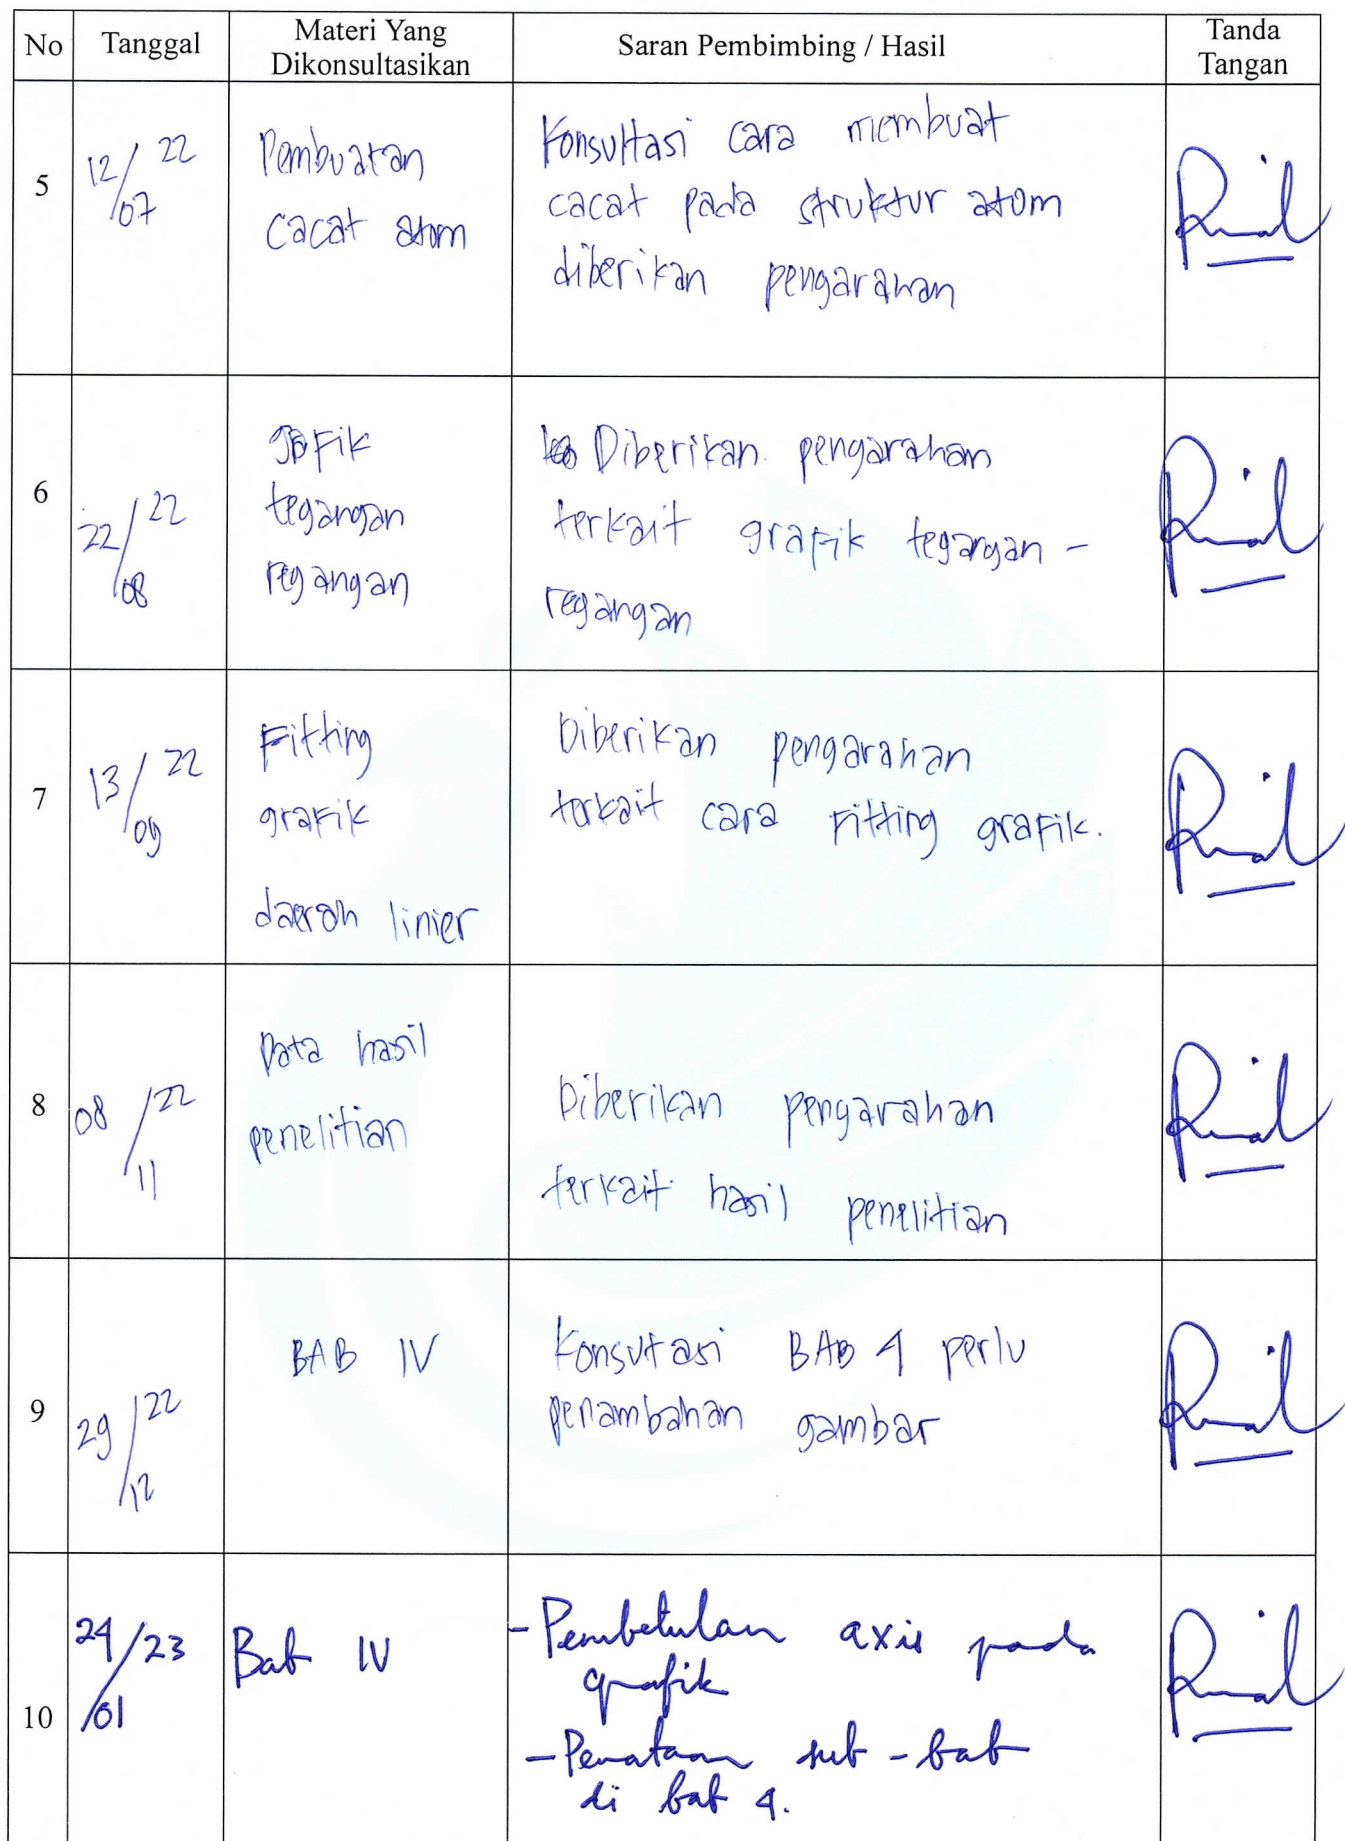 No Tanggal Materi Yang Dikonsultasikan Saran Pembimbing / Hasil Tanda Tangan
5
12/07 22
Pembuatan
cacat atom
Konsultasi cara membuat
cacat pada struktur atom
diberikan pengarahan
6
22/08 22
grafik
tegangan
regangan
Diberikan pengarahan
terkait grafik tegangan -
regangan
7
13/09 22
Fitting
grafik
daerah linier
Diberikan pengarahan
terkait cara Fitting grafik.
8
08/11 22
Data hasil
penelitian
Diberikan pengarahan
terkait hasil penelitian
9
29/12 22
BAB IV
Konsutasi BAB 4 perlu
penambahan gambar
10
24/01/23
Bab IV
- Pembetulan axis pada
grafik
- Penataan sub - bab
di bab 4.